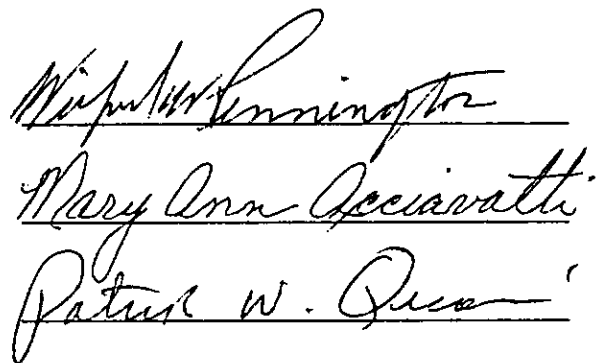 W. Pennington
Mary Ann Acciavatti
Patrick W.